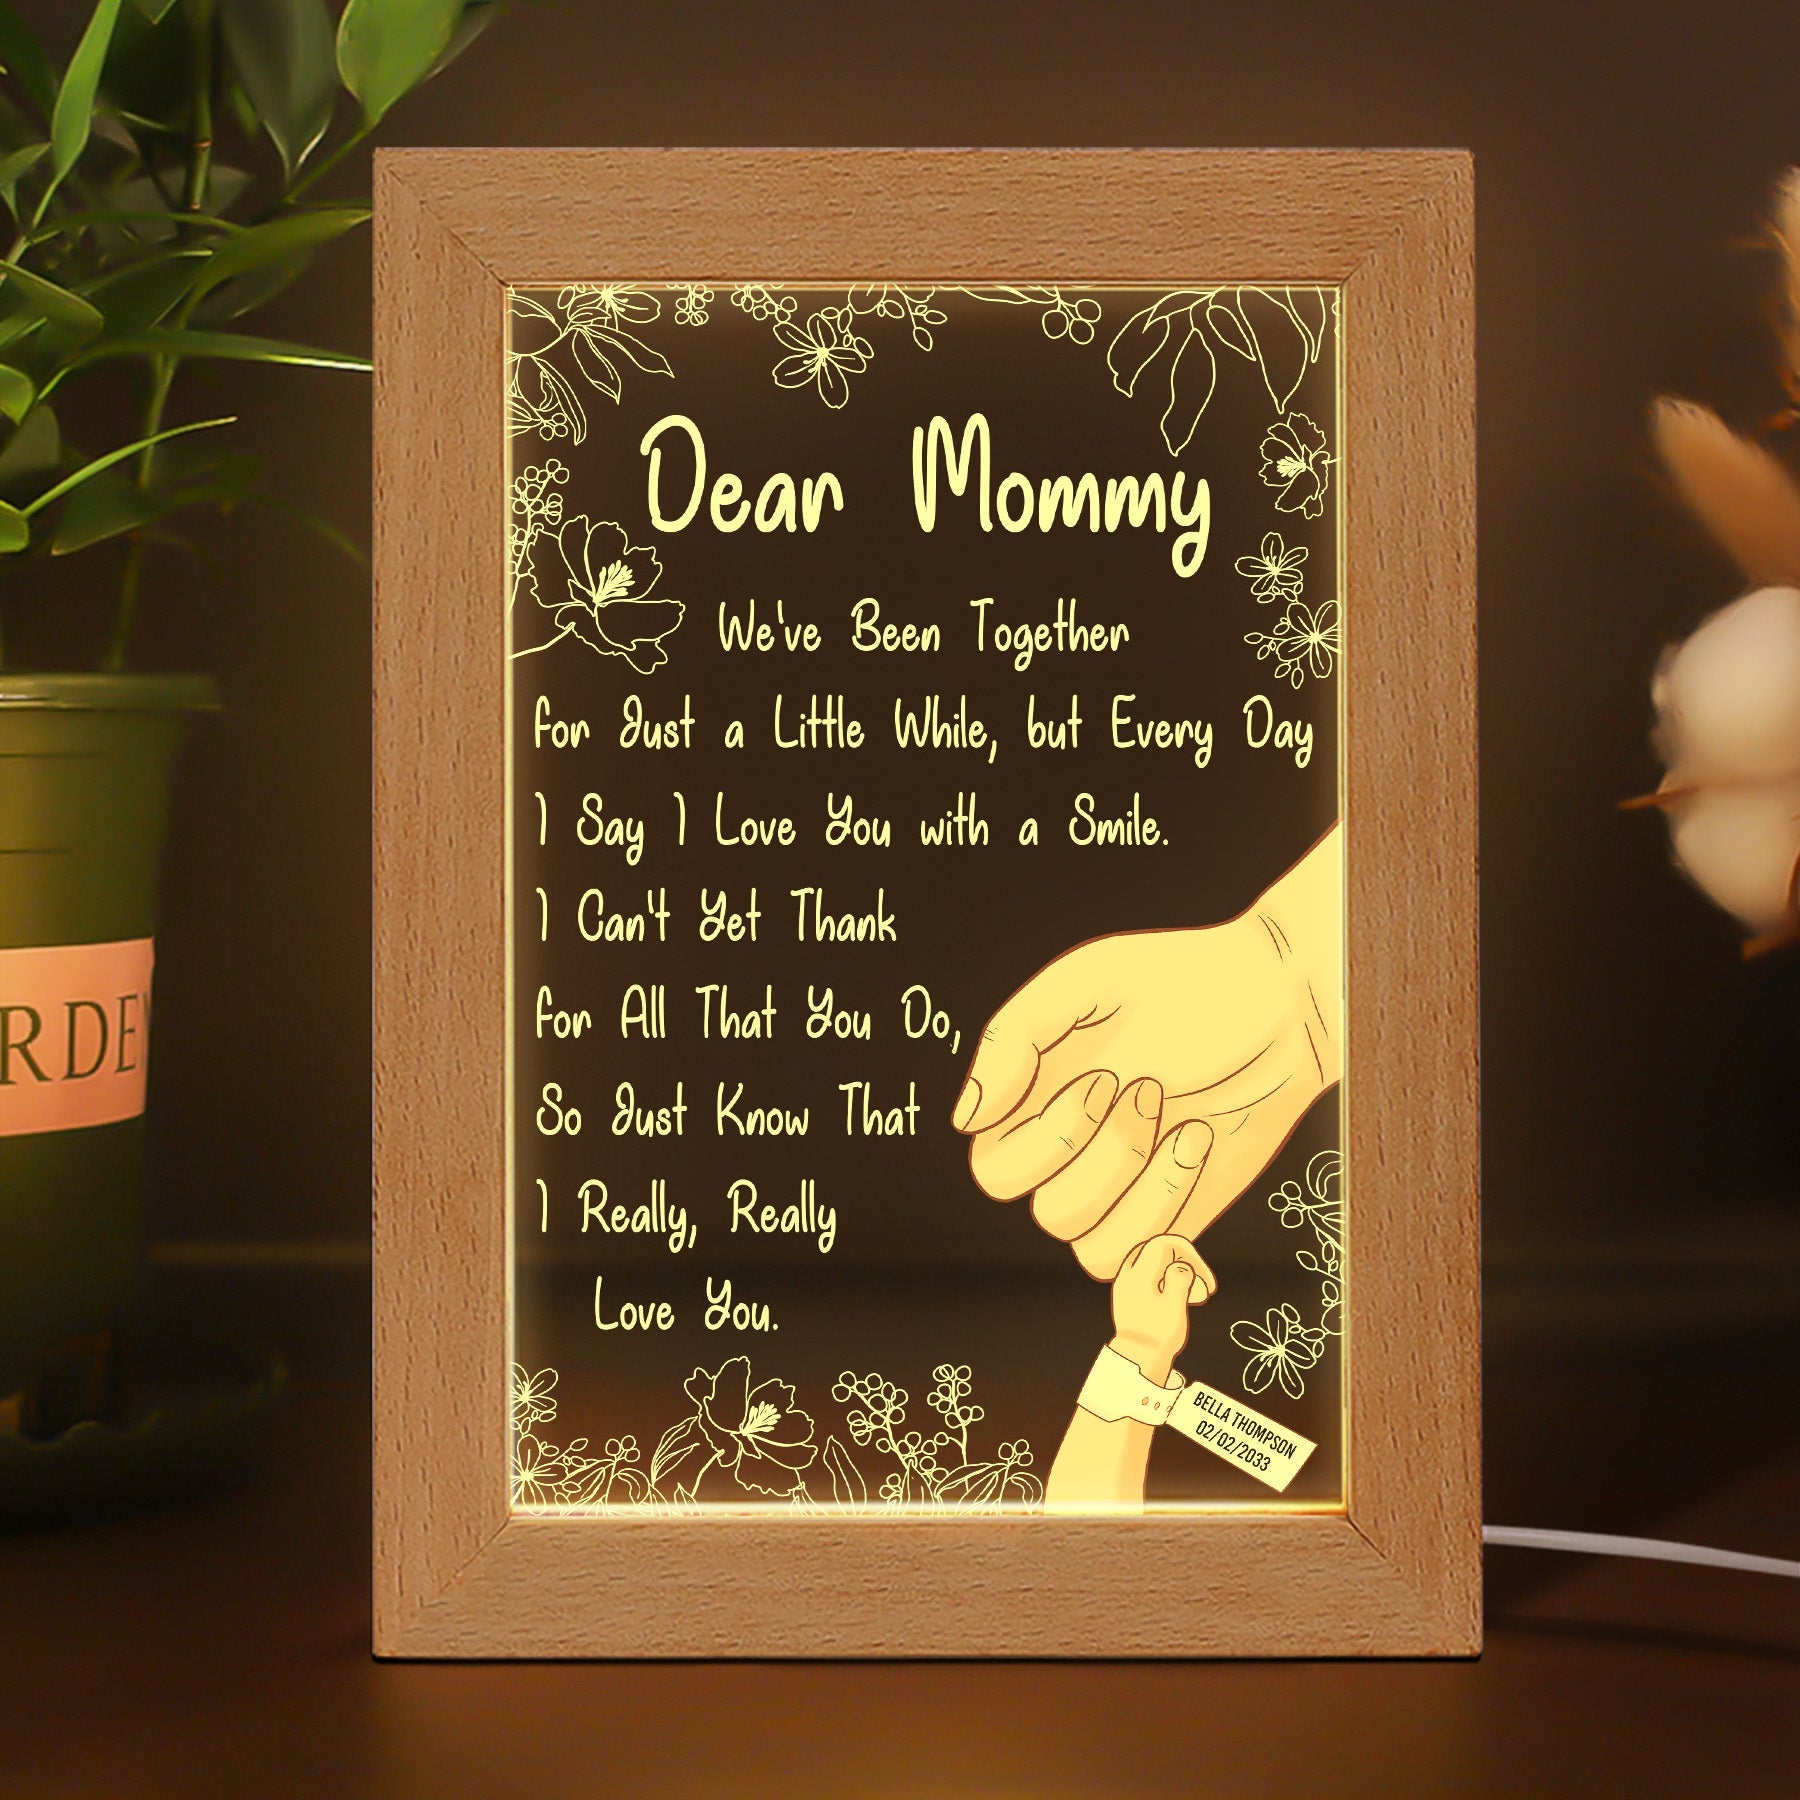 Dear Mommy
We've Been Together
for Just a Little While, but Every Day
I Say I Love You with a Smile.
I Can't Yet Thank
for All That You Do,
So Just Know That
I Really, Really
Love You.
BELLA THOMPSON
02/02/2033
RDEN